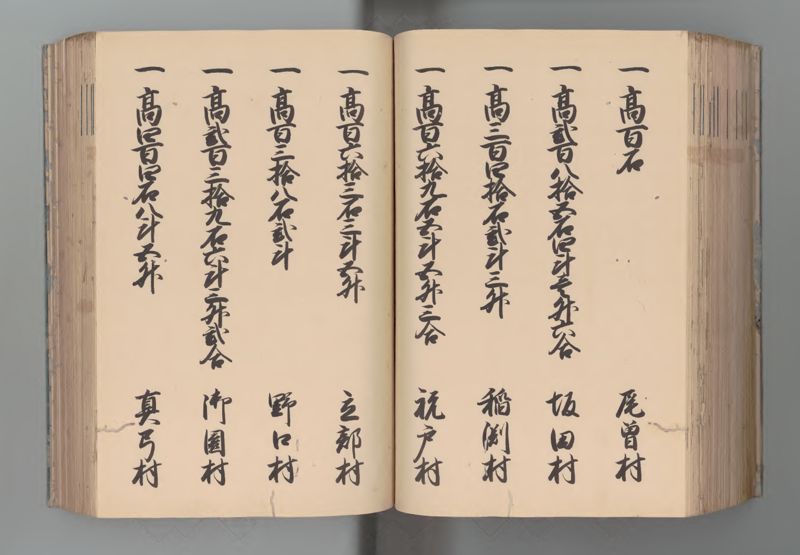 一 高百石 尾曽村
一 高弐百八拾五石四斗壱升六合 坂田村
一 高三百四拾石弐斗三升 稲渕村
一 高百六拾九石五斗五升三合 祝戸村
一 高百六拾三石三斗五升 立部村
一 高百三拾八石弐斗 野口村
一 高弐百三拾九石六斗三升弐合 御園村
一 高四百四石八斗五升 真弓村